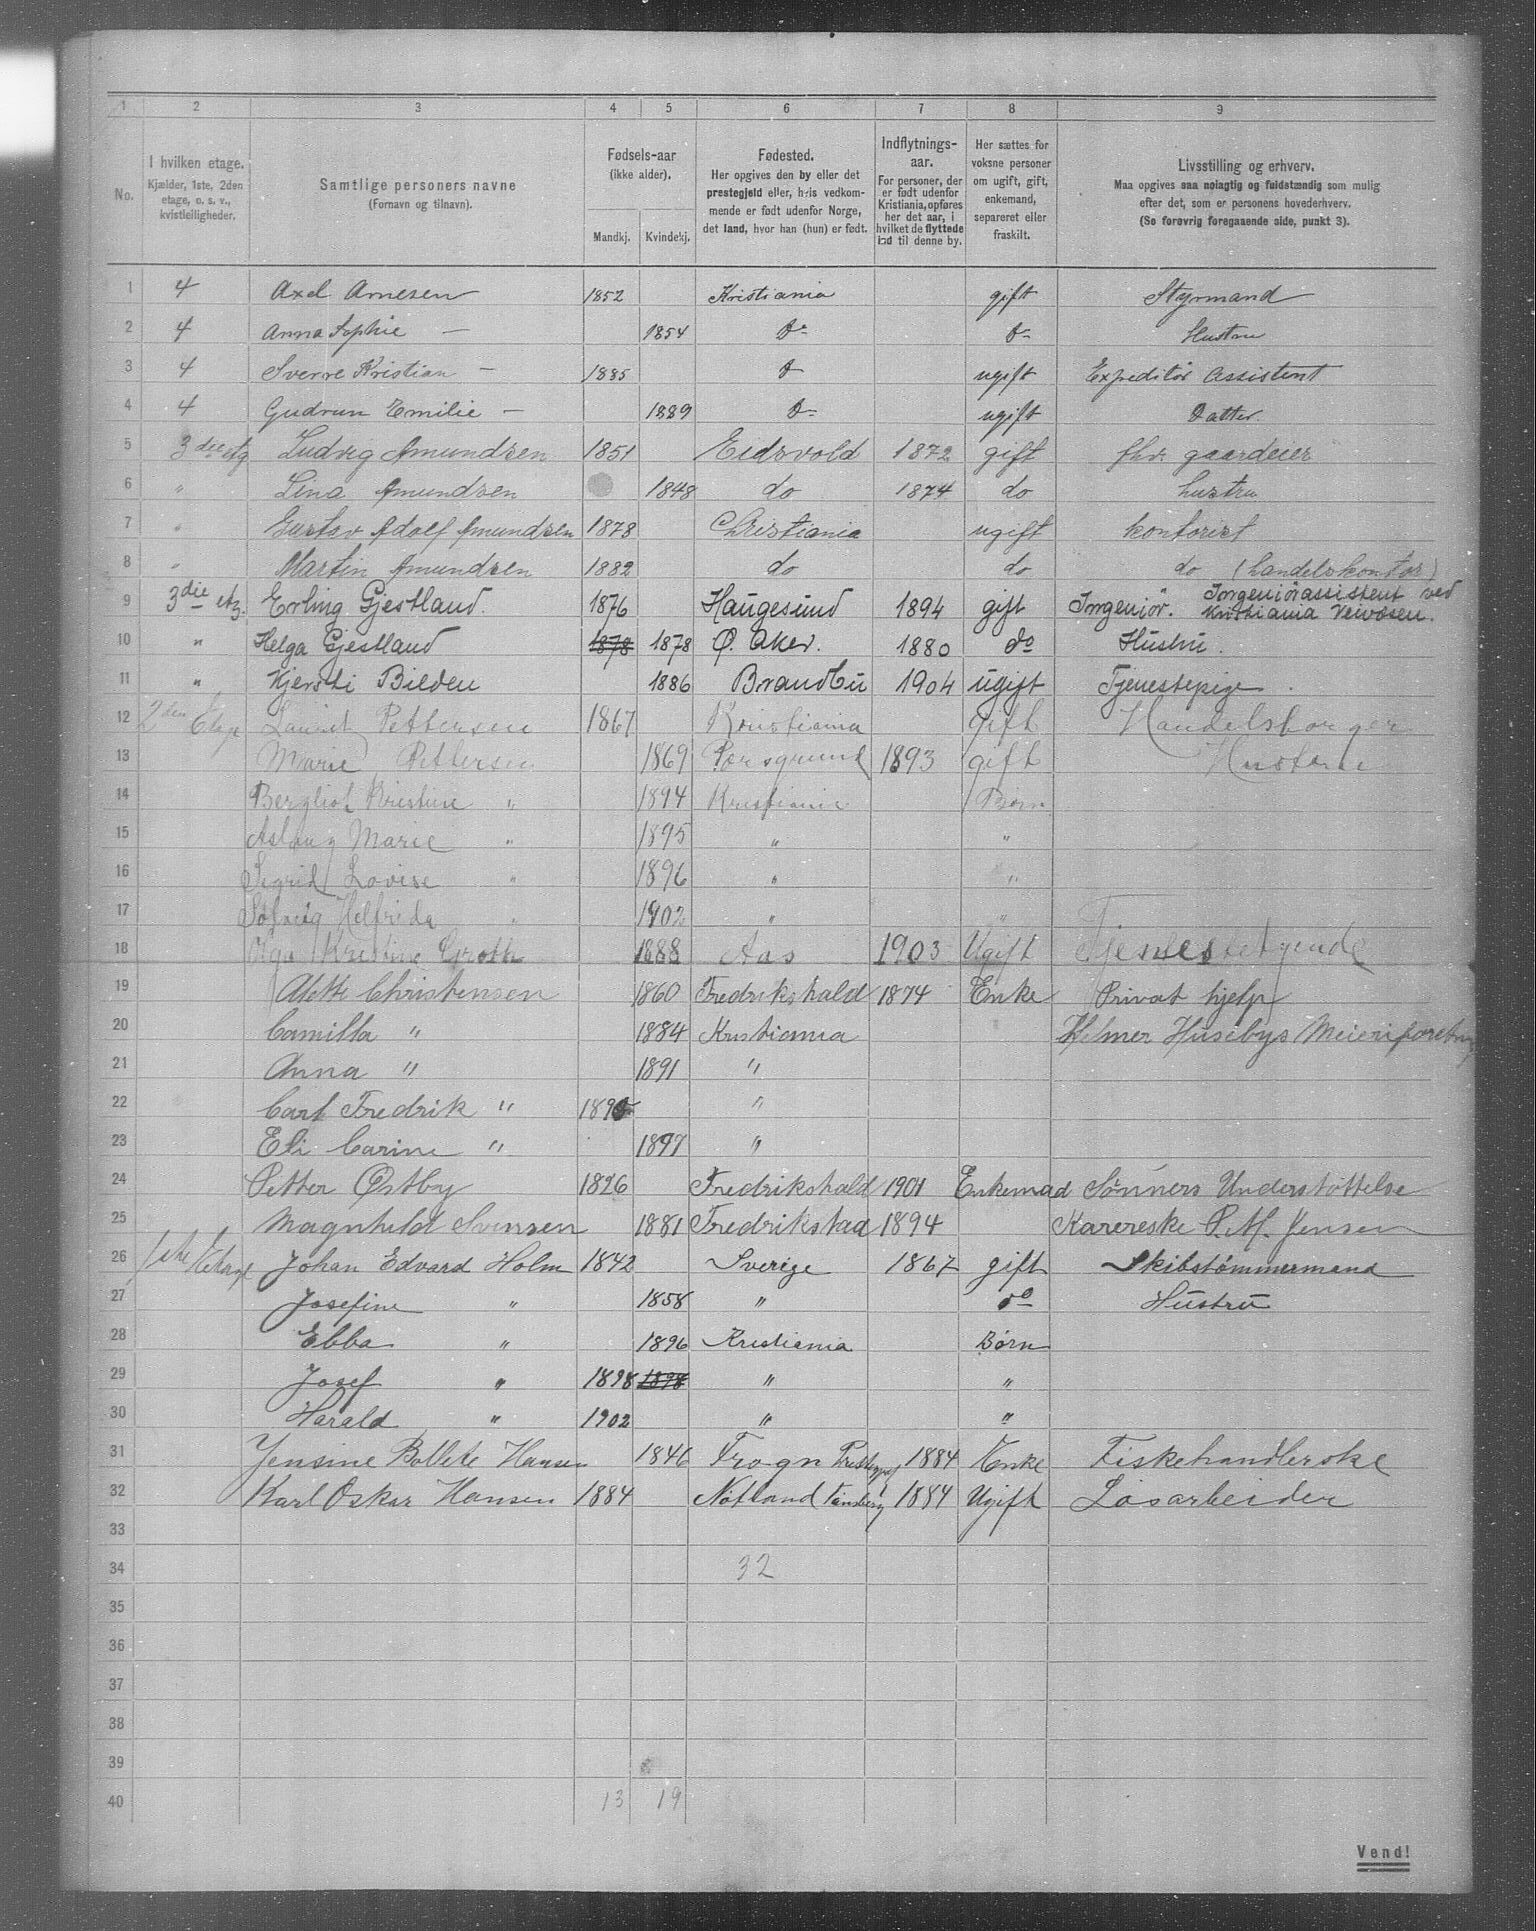 1 2 3 4 5 6 7 8 9
No. | I hvilken etage. Kjælder, 1ste, 2den etage, o. s. v., kvistleiligheder. | Samtlige personers navne (Fornavn og tilnavn). | Fødsels-aar (ikke alder). Mandkj. Kvindekj. | Fødested. Her opgives den by eller det prestegjeld eller, hvis vedkommende er født udenfor Norge, det land, hvor han (hun) er født. | Indflytnings-aar. For personer, der er født udenfor Kristiania, opføres her det aar, i hvilket de flyttede ind til denne by. | Her sættes for voksne personer om ugift, gift, enkemand, separeret eller fraskilt. | Livsstilling og erhverv. Maa opgives saa nøiagtig og fuldstændig som mulig efter det, som er personens hovederhverv. (Se forøvrig foregaaende side, punkt 3).
1 4 Axel Arnesen 1852 Kristiania gift Styrmand
2 4 Anna Sophie — 1854 Do Do Hustru
3 4 Sverre Kristian — 1885 Do ugift Expeditør Assistent
4 4 Gudrun Emilie — 1889 Do ugift Datter.
5 3die etg Ludvig Amundsen 1851 Eidsvold 1872 gift fhv. gaardeier
6 " Lina Amundsen 1848 do 1874 do hustru
7 " Gustav Adolf Amundsen 1878 Christiania ugift kontorist
8 " Martin Amundsen 1882 do do do (handelskontor)
9 3die etg. Erling Gjestland. 1876 Haugesund 1894 gift Ingeniør. Ingeniørassistent ved Kristiania Veivæsen.
10 " Helga Gjestland 1878 1878 Ø. Aker. 1880 do Hustru.
11 " Kjersti Bilden 1886 Brandbu 1904 ugift Tjenestepige.
12 2den Etage Laurits Pettersen 1867 Kristiania gift Handelsborger
13 Marie Pettersen 1869 Porsgrund 1893 gift Hustru
14 Bergliot Kristine " 1894 Kristiania Børn
15 Aslaug Marie " 1895 " "
16 Sigrid Lovise " 1896 " "
17 Solveig Helfrida " 1902 " "
18 Olga Kristine Groth 1888 Aas 1903 Ugift Tjenestetyende
19 Alette Christensen 1860 Fredrikshald 1874 Enke Privat hjelp
20 Camilla " 1884 Kristiania Helmer Husebys Meieriforetn
21 Anna " 1891 "
22 Carl Fredrik " "
23 Eli Carine " 1897 "
24 Petter Østby 1826 Fredrikshald 1901 Enkemad Sønners Understøttelse
25 Magnhild Svensen 1881 Fredrikstad 1894 Karereske P. M. Jensen
26 1ste Etage Johan Edvard Holm 1842 Sverige 1867 gift Skibstømmermand
27 Josefine " 1858 " do Hustru
28 Ebba " 1896 Kristiania Børn
29 Josef " 1898 1898 " "
30 Harald " 1902 " "
31 Jensine Bollete Hansen 1846 Frogn Prestegj 1884 Enke Fiskehandlerske
32 Karl Oskar Hansen 1884 Nøtland Tønsberg 1884 Ugift Løsarbeider
33
34 32
35
36
37
38
39
40 13 19
Vend!